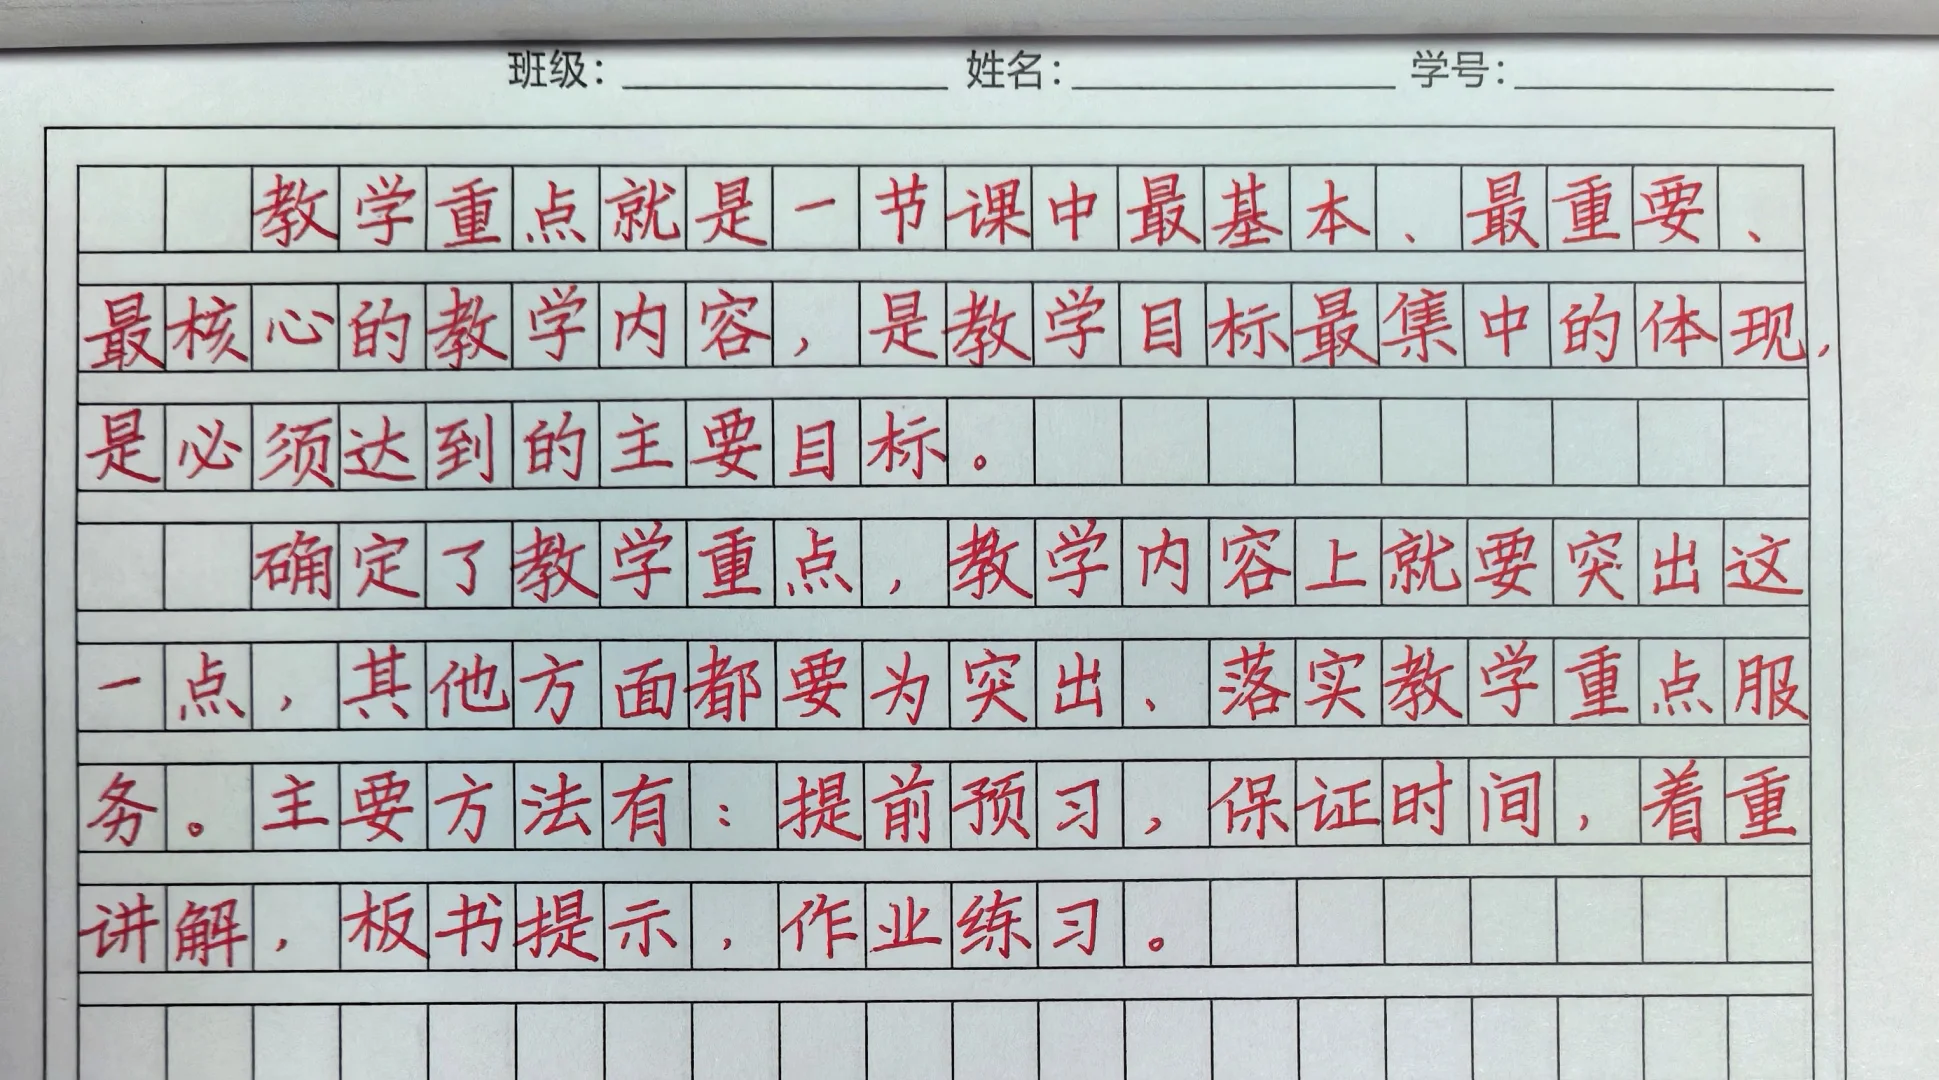 班级：　姓名：　学号：
教学重点就是一节课中最基本、最重要、
最核心的教学内容，是教学目标最集中的体现，
是必须达到的主要目标。
确定了教学重点，教学内容上就要突出这
一点，其他方面都要为突出、落实教学重点服
务。主要方法有：提前预习，保证时间，着重
讲解，板书提示，作业练习。